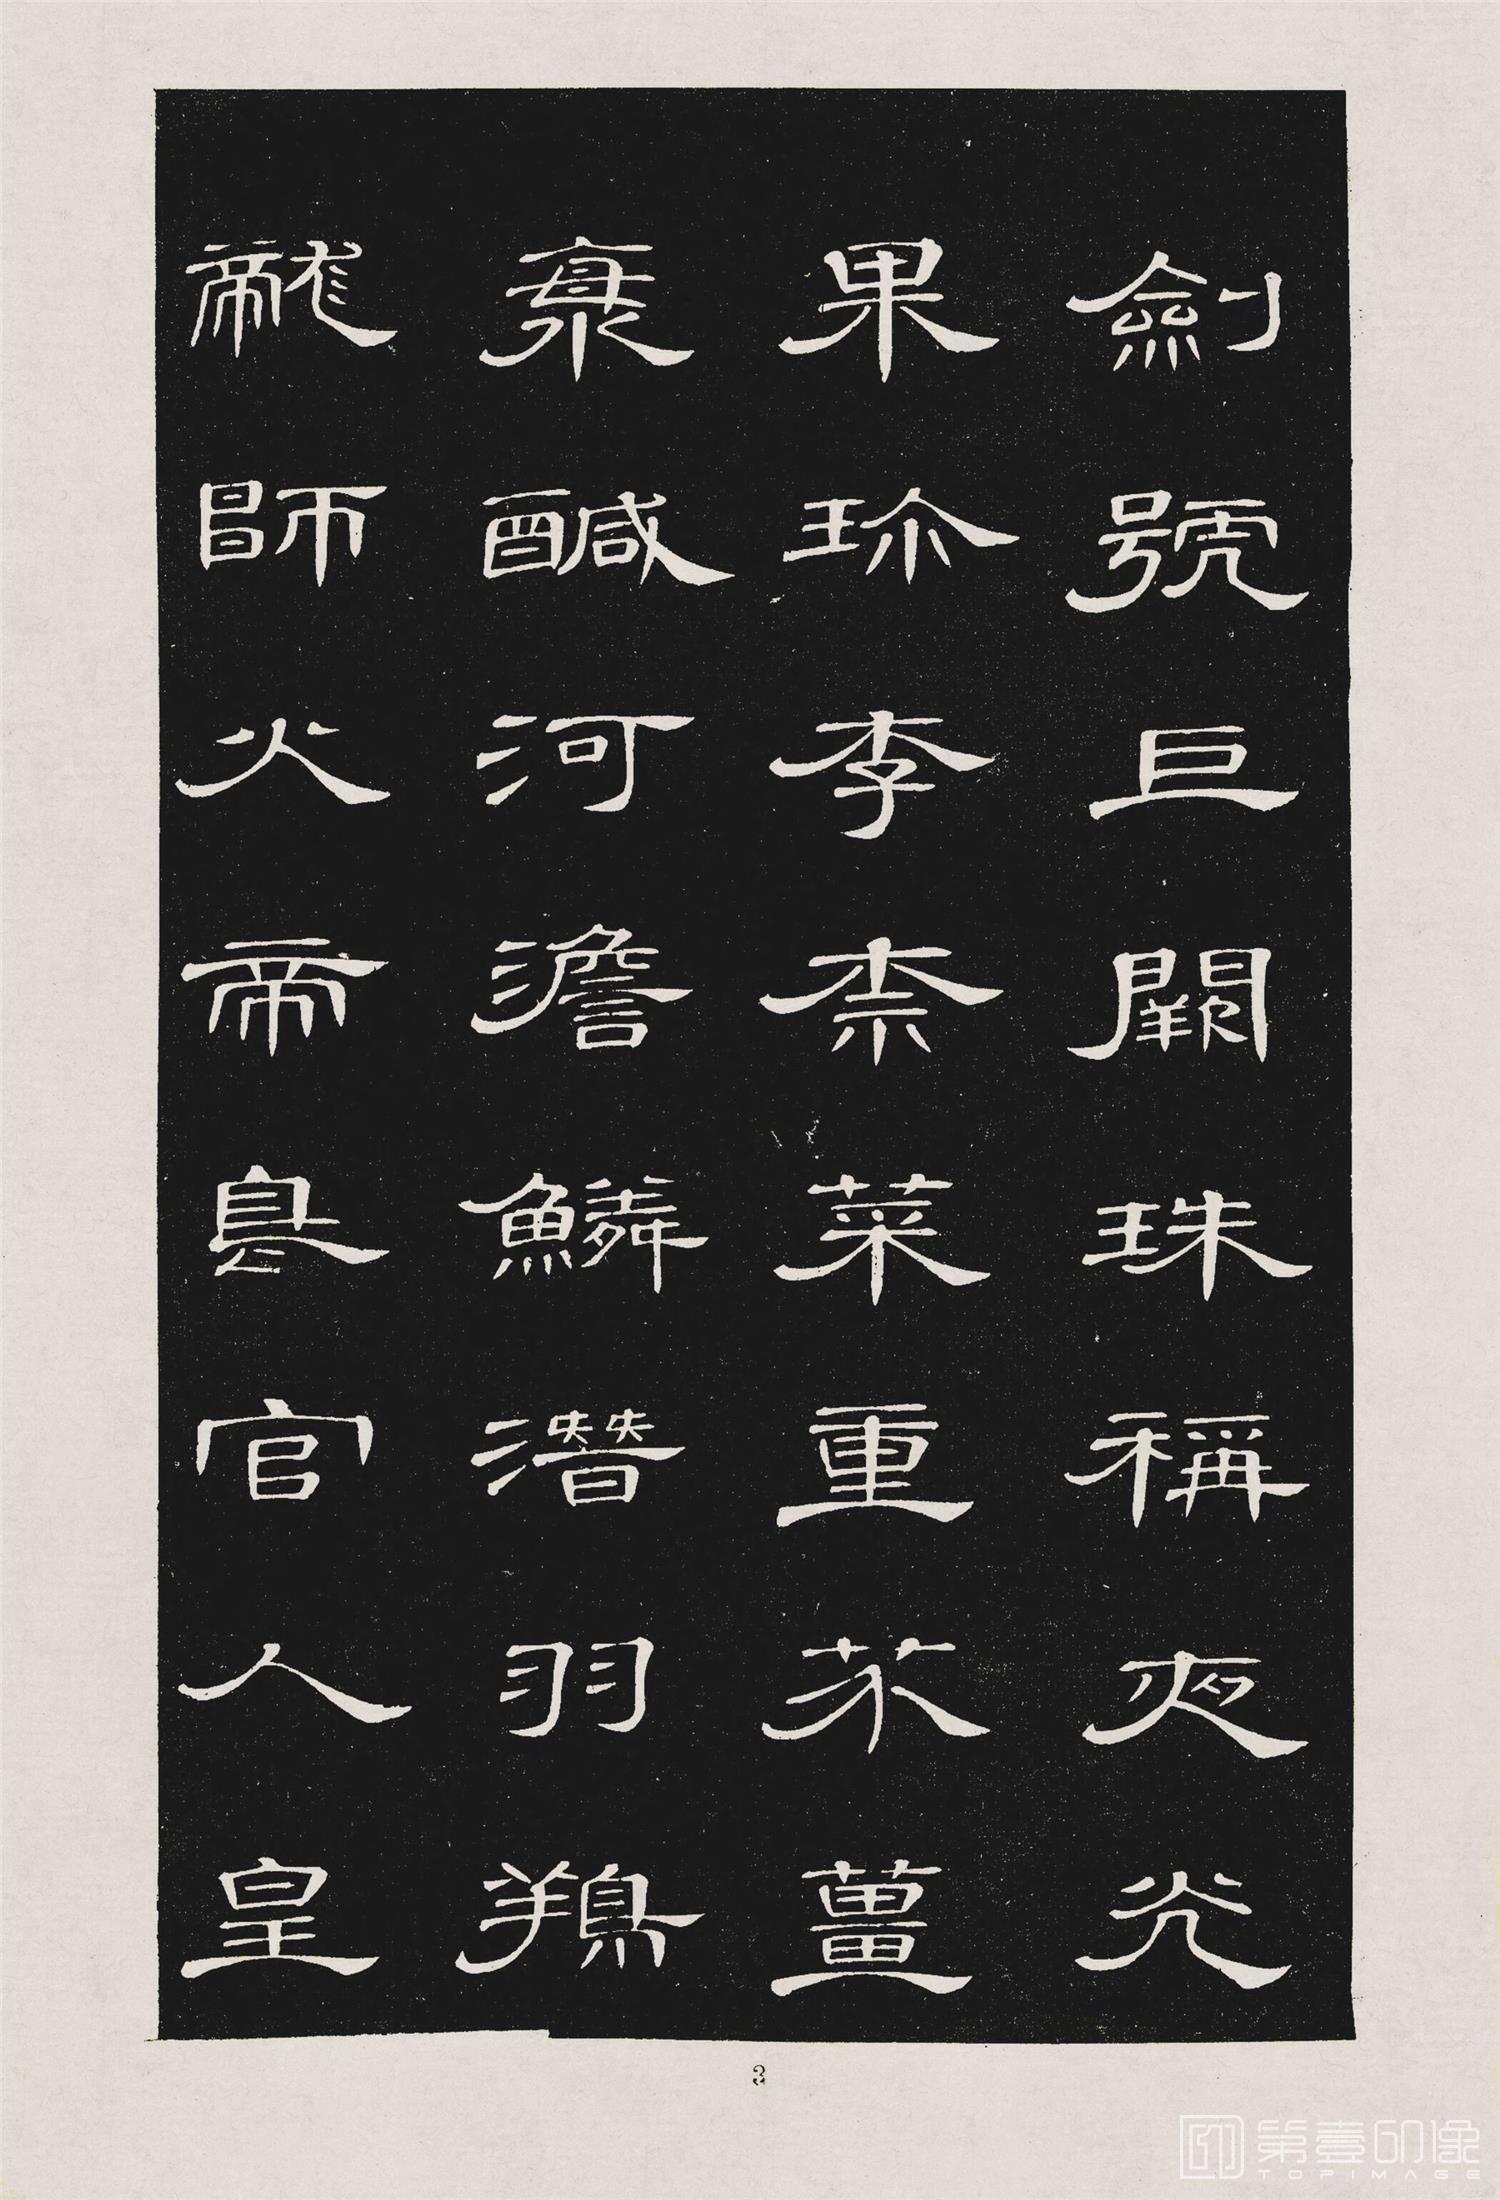 劍號巨闕珠稱夜光
果珍李柰菜重芥薑
海鹹河澹鱗潛羽翔
龍師火帝鳥官人皇
3
第壹印像
TOPIMAGE